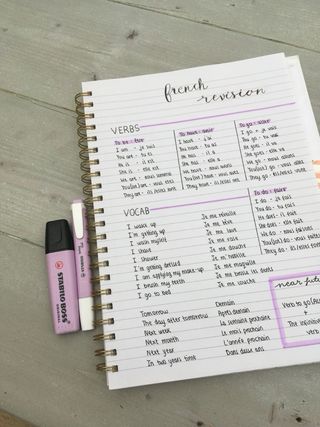 french
revision
VERBS
To be - être
I am - je suis
You are - tu es
He is - il est
She is - elle est
We are - nous sommes
You (are) - vous êtes
They are - ils/elles sont
To have - avoir
I have - j'ai
You have - tu as
He has - il a
She has - elle a
We have - nous avons
You (have) - vous avez
They have - ils/elles ont
To go - aller
I go - je vais
You go - tu vas
He goes - il va
She goes - elle va
We go - nous allons
You (go) - vous allez
They go - ils/elles vont
VOCAB
I wake up
I'm getting up
I wash myself
I shave
I shower
I'm getting dressed
I am applying my make-up
I brush my teeth
I go to bed
Je me réveille
Je me lève
Je me lave
Je me rase
Je me douche
Je m'habille
Je me maquille
Je me brosse les dents
Je me couche
To do - faire
I do - je fais
You do - tu fais
He does - il fait
She does - elle fait
We do - nous faisons
You (do) - vous faites
They do - ils/elles font
Tomorrow
The day after tomorrow
Next week
Next month
Next year
In two years time
Demain
Après demain
La semaine prochaine
Le mois prochain
L'année prochaine
Dans deux ans
near futu
Verb to go
+
The infinitive
verb
STABILO BOSS